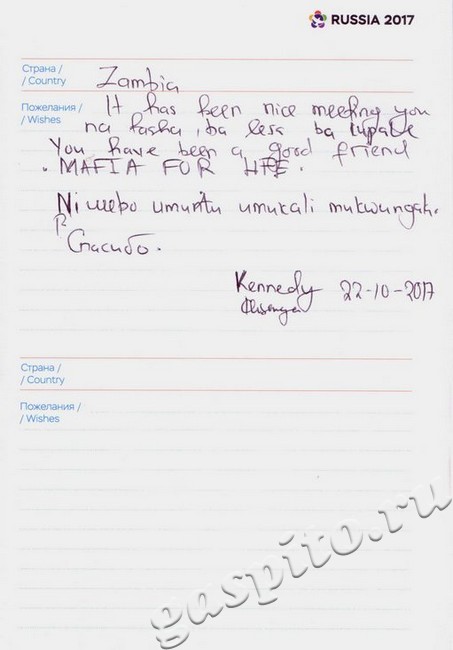 RUSSIA 2017
Страна /
/ Country
Zambia
Пожелания /
/ Wishes
It has been nice meeting you
na Pasha, ba less ba
You have been a good friend
. MAFIA FOR LIFE.
Ni webo umuntu umukali
Спасибо.
Kennedy 22-10-2017
Страна /
/ Country
Пожелания /
/ Wishes
gaspito.ru